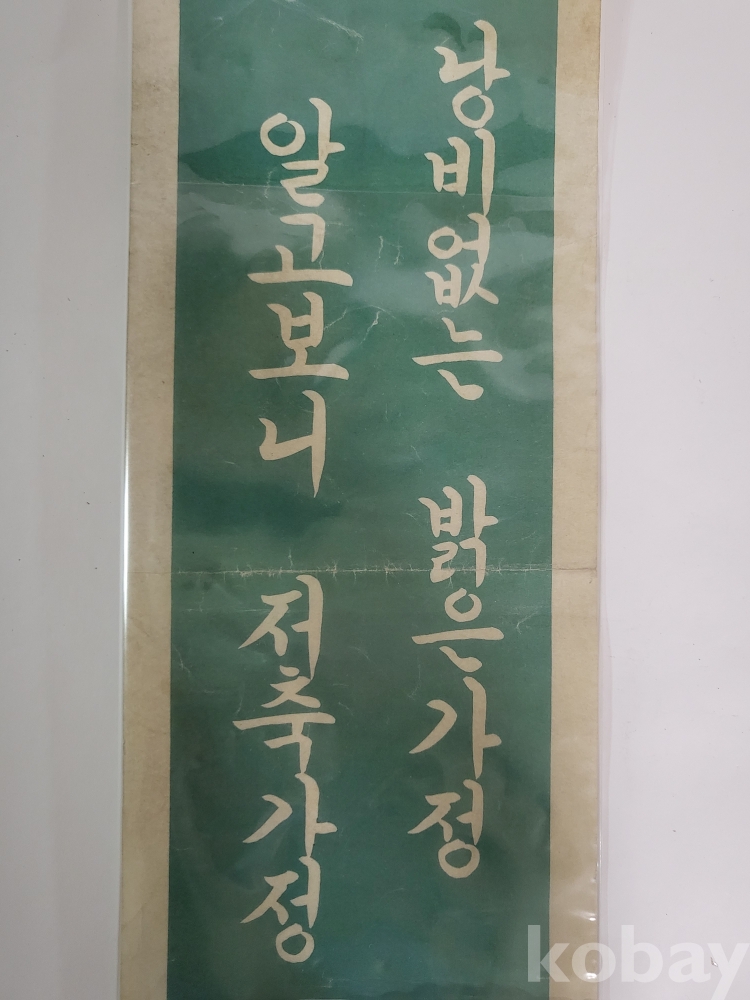 낭비없는 밝은가정
알고보니 저축가정
kobay